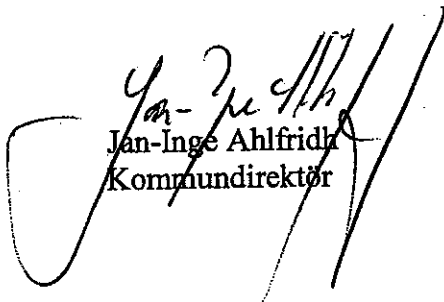 Jan-Inge Ahlfridh
Kommundirektör